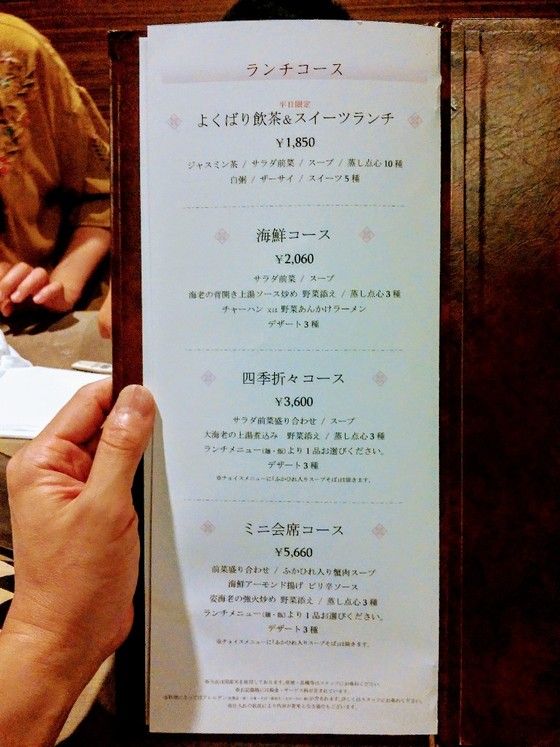 ランチコース
平日限定
よくばり飲茶&スイーツランチ
¥1,850
ジャスミン茶 / サラダ前菜 / スープ / 蒸し点心10種
白粥 / ザーサイ / スイーツ5種
海鮮コース
¥2,060
サラダ前菜 / スープ
海老の背開き上湯ソース炒め 野菜添え / 蒸し点心3種
チャーハン 又は 野菜あんかけラーメン
デザート3種
四季折々コース
¥3,600
サラダ前菜盛り合わせ / スープ
大海老の上湯煮込み 野菜添え / 蒸し点心3種
ランチメニュー(麺・飯)より1品お選びください。
デザート3種
※チョイスメニューに「ふかひれ入りスープそば」は除きます。
ミニ会席コース
¥5,660
前菜盛り合わせ / ふかひれ入り蟹肉スープ
海鮮アーモンド揚げ ピリ辛ソース
姿海老の強火炒め 野菜添え / 蒸し点心3種
ランチメニュー(麺・飯)より1品お選びください。
デザート3種
※チョイスメニューに「ふかひれ入りスープそば」は除きます。